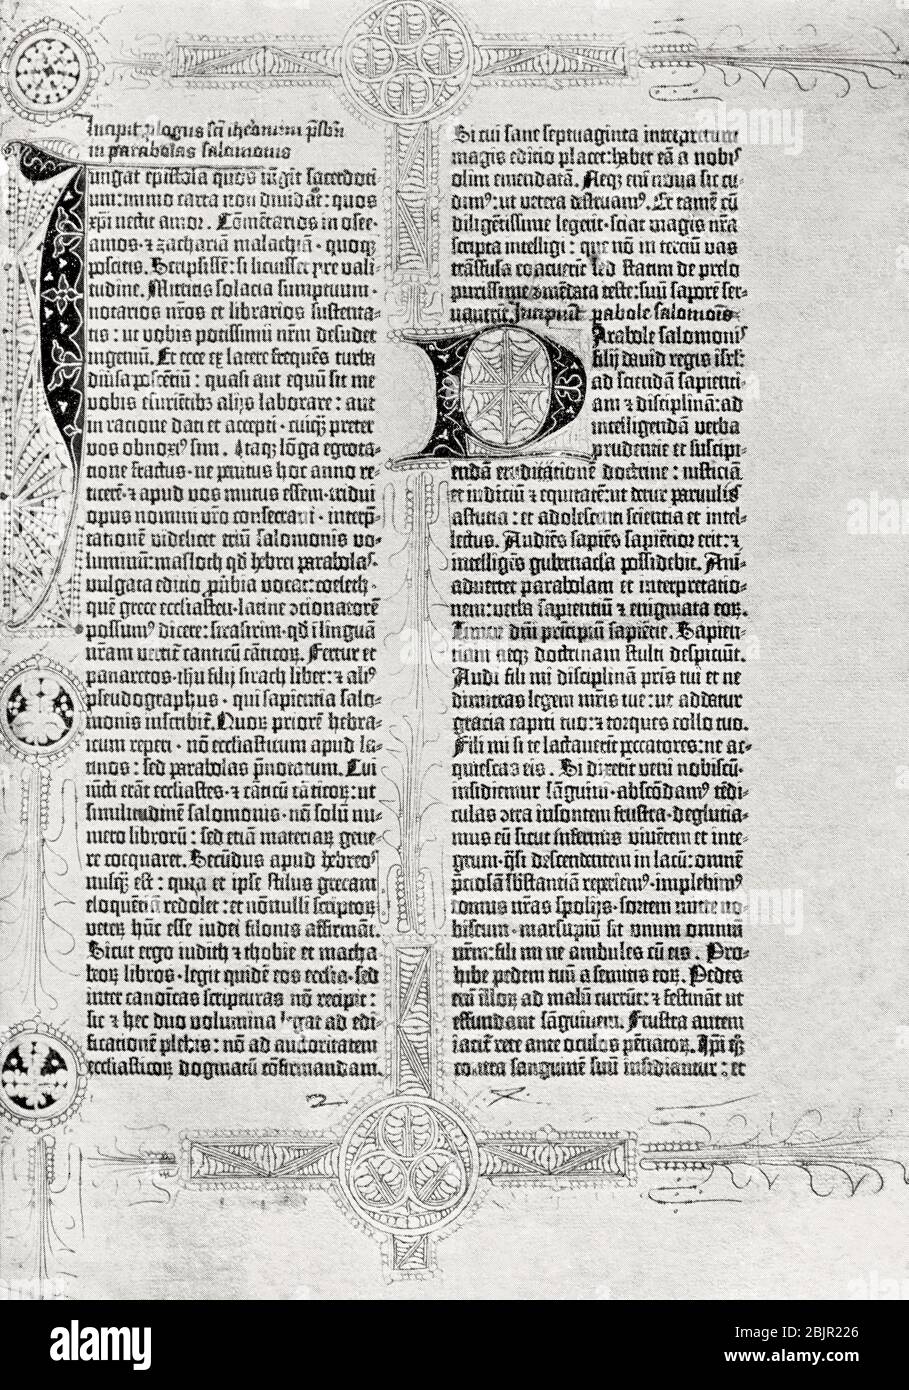 Incipit plogus sci iheronimi psbri
in parabolas salomonis
Iungat epistola quos iūgit sacerdoti-
um: immo carta non diuidat: quos
xpi nectit amor. Cōmētarios in osee-
amos·⁊ zachariā malachiā· quoqꝫ
poscitis. Scripsissē: si licuisset pre vali-
tudine. Mittitis solacia sumptuum·
notarios nr̄os et librarios sustenta-
tis: ut vobis potissimū nr̄m desudet
ingeniū. Et ecce ex latere frequēs turba
diūsa poscētiū: quasi aut equū sit me
vobis esuriētibꝫ alijs laborare: aut
in ratione dati et accepti· cuiqꝫ preter
vos obnoxꝰ sim. Itaqꝫ lōga egrota-
tione fractus· ne penitus hoc anno re-
ticerē·⁊ apud vos mutus essem· tridui
opus nomini vr̄o consecraui· interp̄-
tationē videlicet triū salomonis vo-
luminū: masloth qd̄ hebrei parabolas·
vulgata editio p̄ubia vocat: coeleth·
quē grece ecclīasten· latine ↄcionatorē
possumꝰ dicere: sirasirim· qd̄ i linguā
nr̄am vertit̄ canticū cāticoꝝ. Fertur et
panaretos· ihu filij sirach liber: ⁊ aliꝰ
pseudographus· qui sapientia salo-
monis inscribit̄. Quoꝝ priorē hebra-
icum reperi· nō ecclīasticum apud la-
tinos: sed parabolas p̄notatum. Cui
iūcti erāt ecclīastes·⁊ cāticū cāticoꝝ: ut
similitudinē salomonis· nō solū nu-
mero librorū: sed etiā materiaꝝ gene-
re coequaret. Secūdus apud hebreos
nusqꝫ est: quia et ipse stilus grecam
eloquētiā redolet: et nōnulli scriptoꝝ
veteꝝ hūc esse iudei filonis affirmāt.
Sicut ergo iudith ⁊ thobie et macha-
beoꝝ libros· legit quidē eos eccl̄ia· sed
inter canoīcas scripturas nō recipit:
sic ⁊ hec duo volumina legat ad edi-
ficationē plebis: nō ad auctoritatem
ecclīasticoꝝ dogmatū cōfirmandam.
Si cui sane septuaginta interpretum
magis editio placet: habet eā a nobis
olim emendatā. Neqꝫ enī noua sic cu-
dimꝰ: ut vetera destruamꝰ. Et tamē cū
diligētissime legerit· sciat magis nr̄a
scripta intelligi: que nō in terciū vas
trāsfusa coacuerīt sed statim de prelo
purissime ↄmēdata teste: suū saporē ser-
uauerīt. Incipiunt pabole salomōis
Parabole salomonis
filij dauid regis isr̄l:
ad sciendā sapienti-
am ⁊ disciplinā: ad
intelligendā verba
prudentie et suscipi-
endā eruditationē doctrine: iusticiā
et iudiciū ⁊ equitatē: ut detur paruulis
astutia: et adolescenti scientia et intel-
lectus. Audiēs sapiēs sapiētior erit: ⁊
intelligēs gubernacla possidebit. Ani-
aduertet parabolam et interpretatio-
nem: verba sapientiū ⁊ enigmata eoꝝ.
Timor dn̄i principiū sapiētie. Sapien-
tiam atqꝫ doctrinam stulti despiciūt.
Audi fili mi disciplinā pr̄is tui et ne
dimittas legem mr̄is tue: ut addatur
gracia capiti tuo: ⁊ torques collo tuo.
Fili mi si te lactauerīt peccatores: ne ac-
quiescas eis. Si dixerīt veni nobiscū·
insidiemur sāguini· abscōdamꝰ tēdi-
culas ↄtra insontem frustra· deglutia-
mus eū sicut infernus viuētem et inte-
grum· q̄si descendentem in lacū: omnē
p̄ciosā sb̄stantiā reperiemꝰ· implebimꝰ
domus nr̄as spolijs· sortem mitte no-
biscum· marsupiū sit unum omniū
nr̄m: fili mi ne ambules cū eis. Pro-
hibe pedem tuū a semitis eoꝝ. Pedes
enī illoꝝ ad malū currūt: ⁊ festināt ut
effundant sāguinem. Frustra autem
iacit̄ rete ante oculos pēnatoꝝ. Ipi qꝫ
contra sanguinē suū insidiantur: et
alamy
Image ID: 2BJR226
www.alamy.com